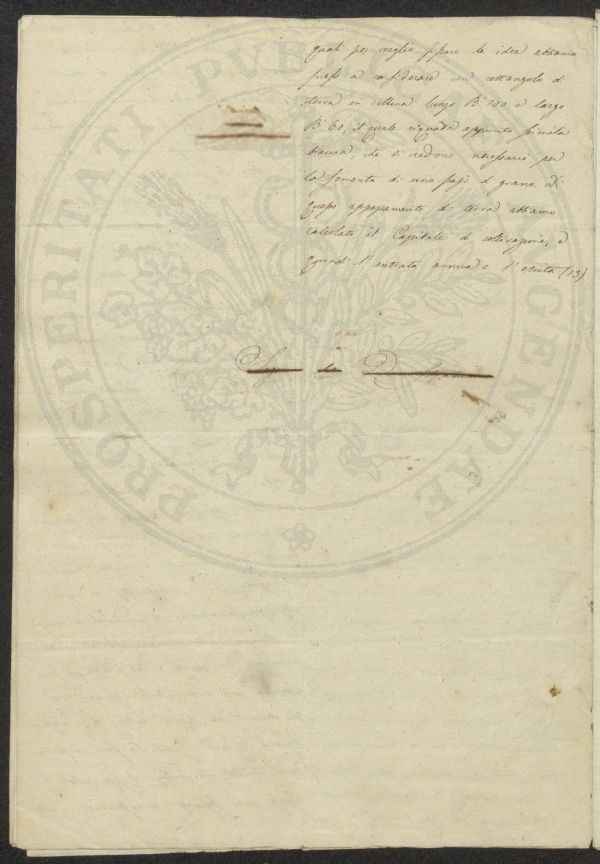 PROSPERITATI PUBLICAE AUGENDAE
quali per meglio fissare le idee abbiamo
preso a considerare un rettangolo di
terra in collina lungo B.ª 100 e largo
B.ª 60, il quale riguarda appunto seimila
braccia, che si credono necessarie per
la sementa di uno stajo di grano. Di
questo appezzamento di terra abbiamo
calcolato il Capitale di coltivazione, e
quindi l'entrata annua e l'escita (13)